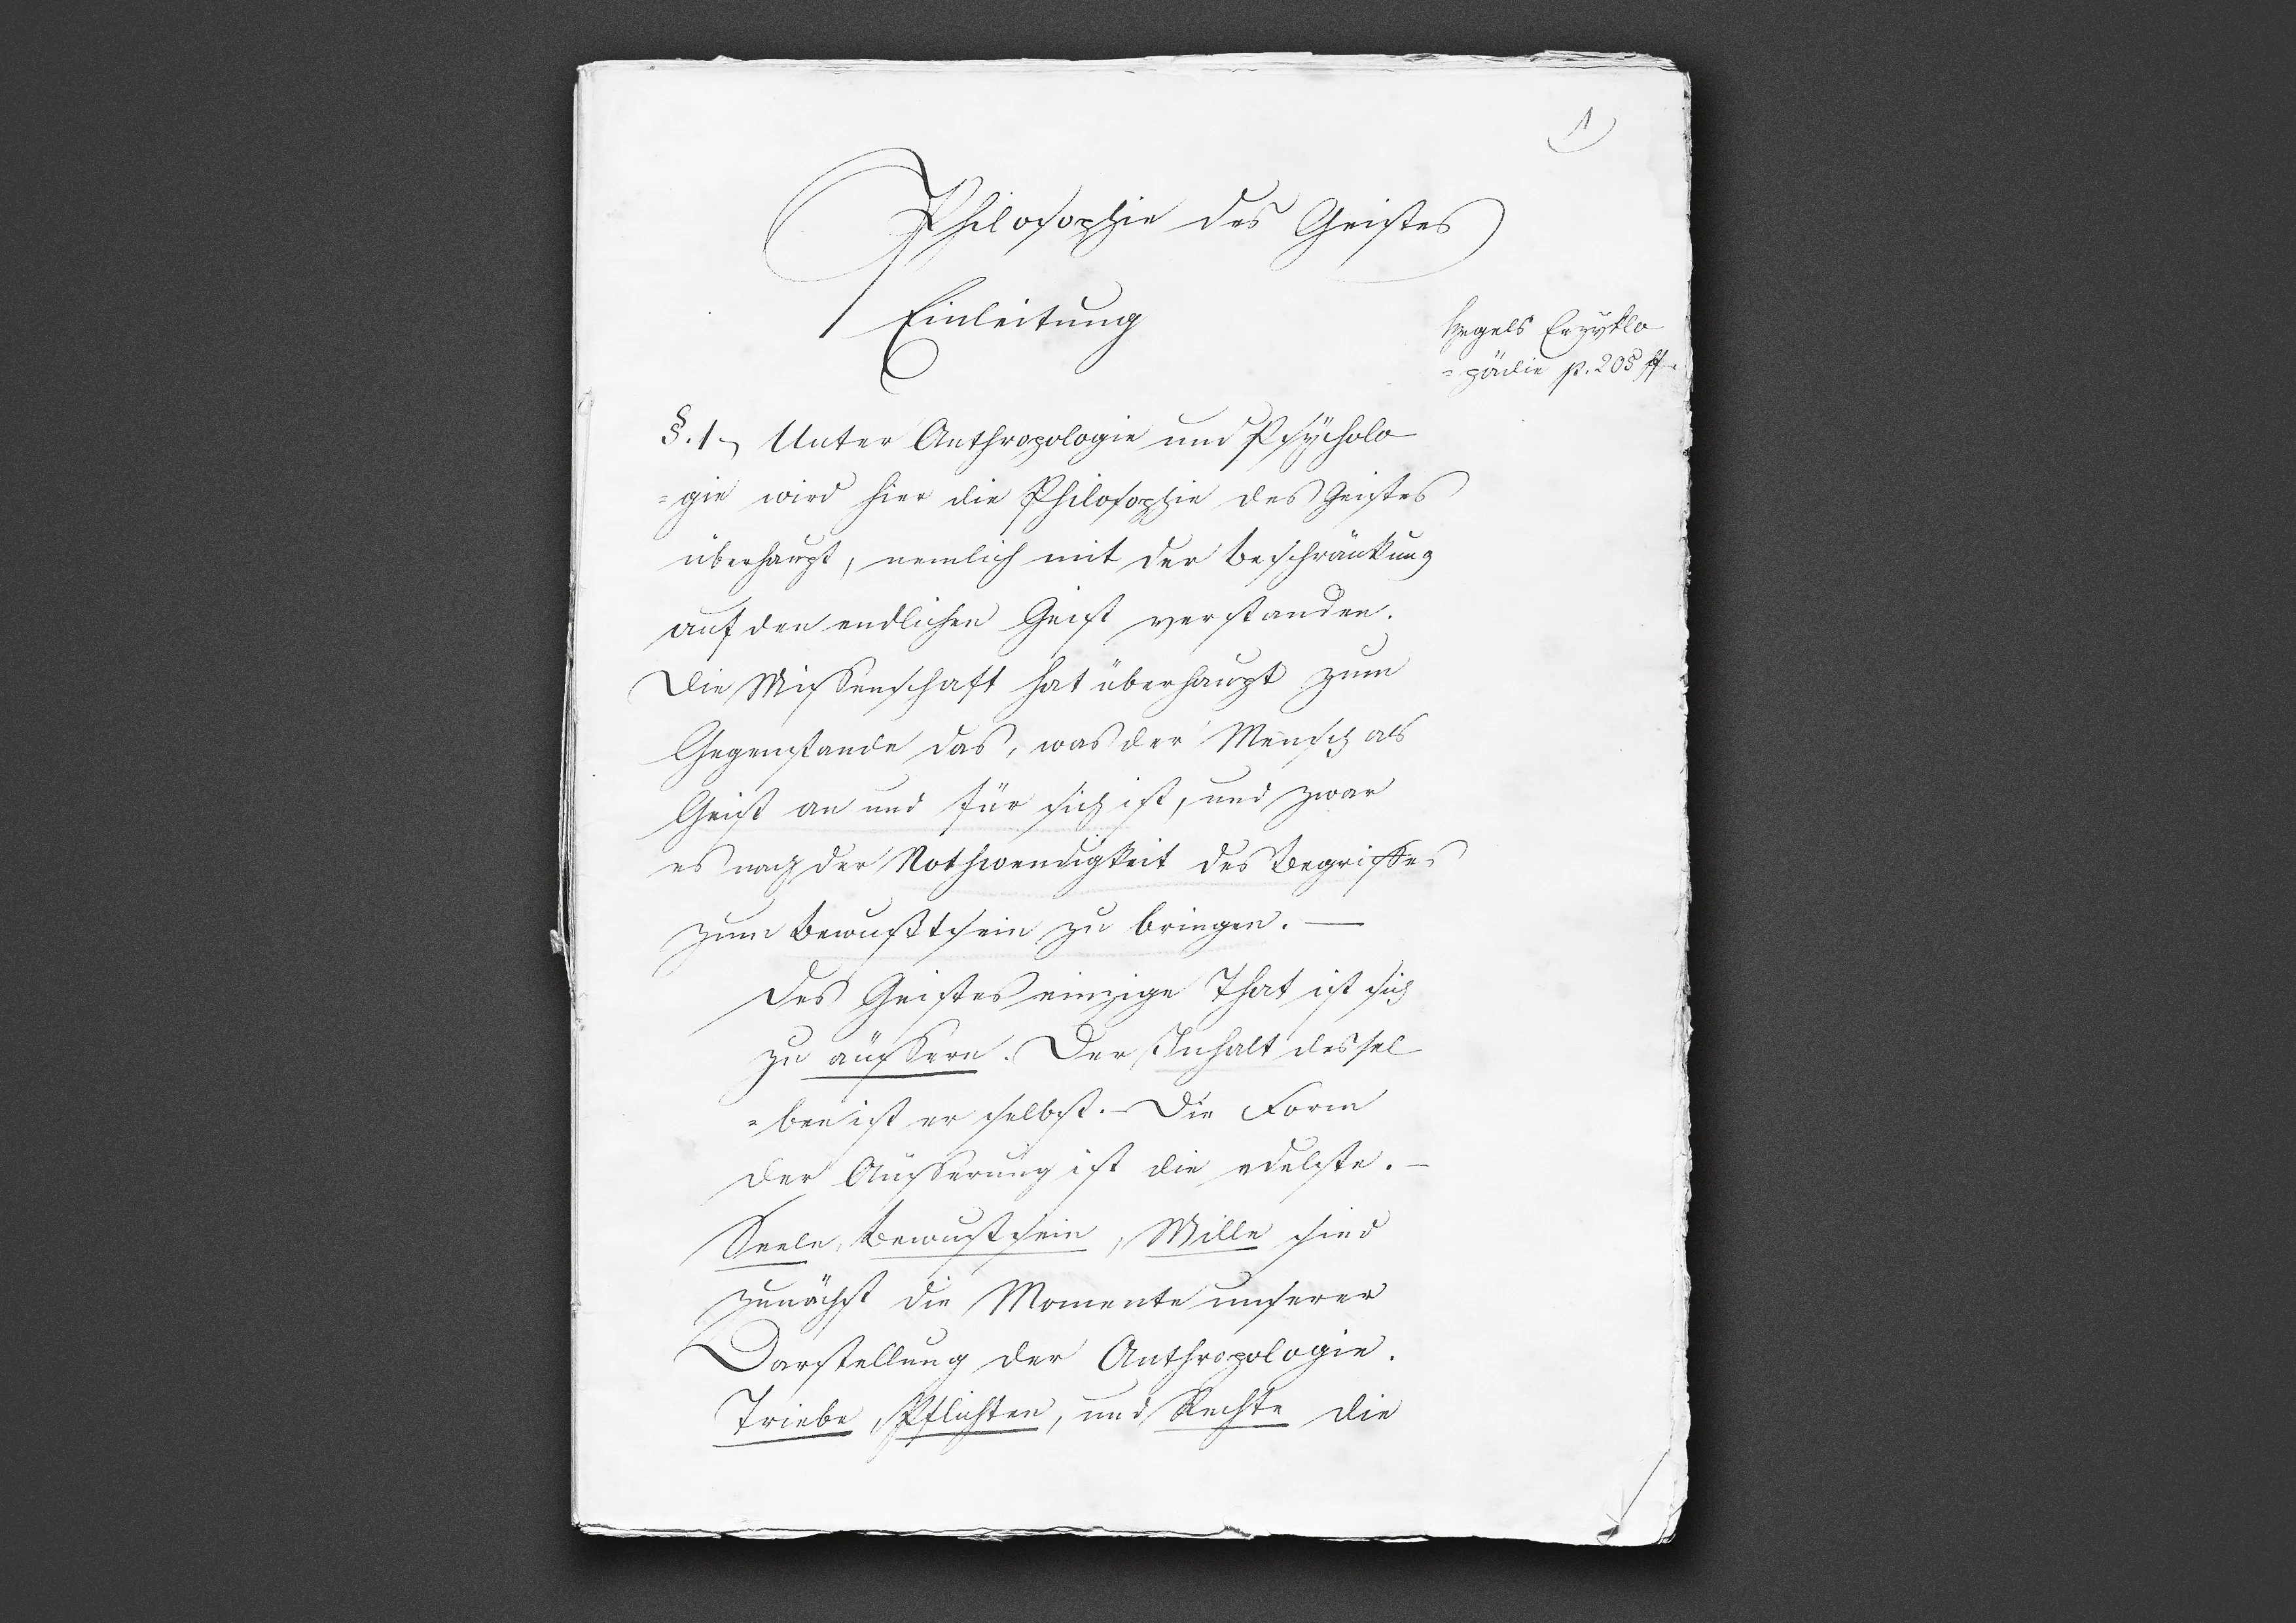 1)
Philosophie des Geistes
Einleitung
Hegels Enzyklo
=pädie p. 205 ff.
§. 1, Unter Anthropologie und Psÿcholo
=gie wird hier die Philosophie des Geistes
überhaupt, nemlich mit der Beschränkung
auf den endlichen Geist verstanden.
Die Wissenschaft hat überhaupt zum
Gegenstande das, was der Mensch als
Geist an und für sich ist, und zwar
es nach der Nothwendigkeit des Begriffes
zum Bewußtsein zu bringen. —
Des Geistes einzige That ist sich
zu äussern. Der Inhalt dessel
=ben ist er selbst. – Die Form
der Äusserung ist die edelste. –
Seele, Bewustsein, Wille sind
zunächst die Momente unserer
Darstellung der Anthropologie.
Triebe, Pflichten, und Rechte die